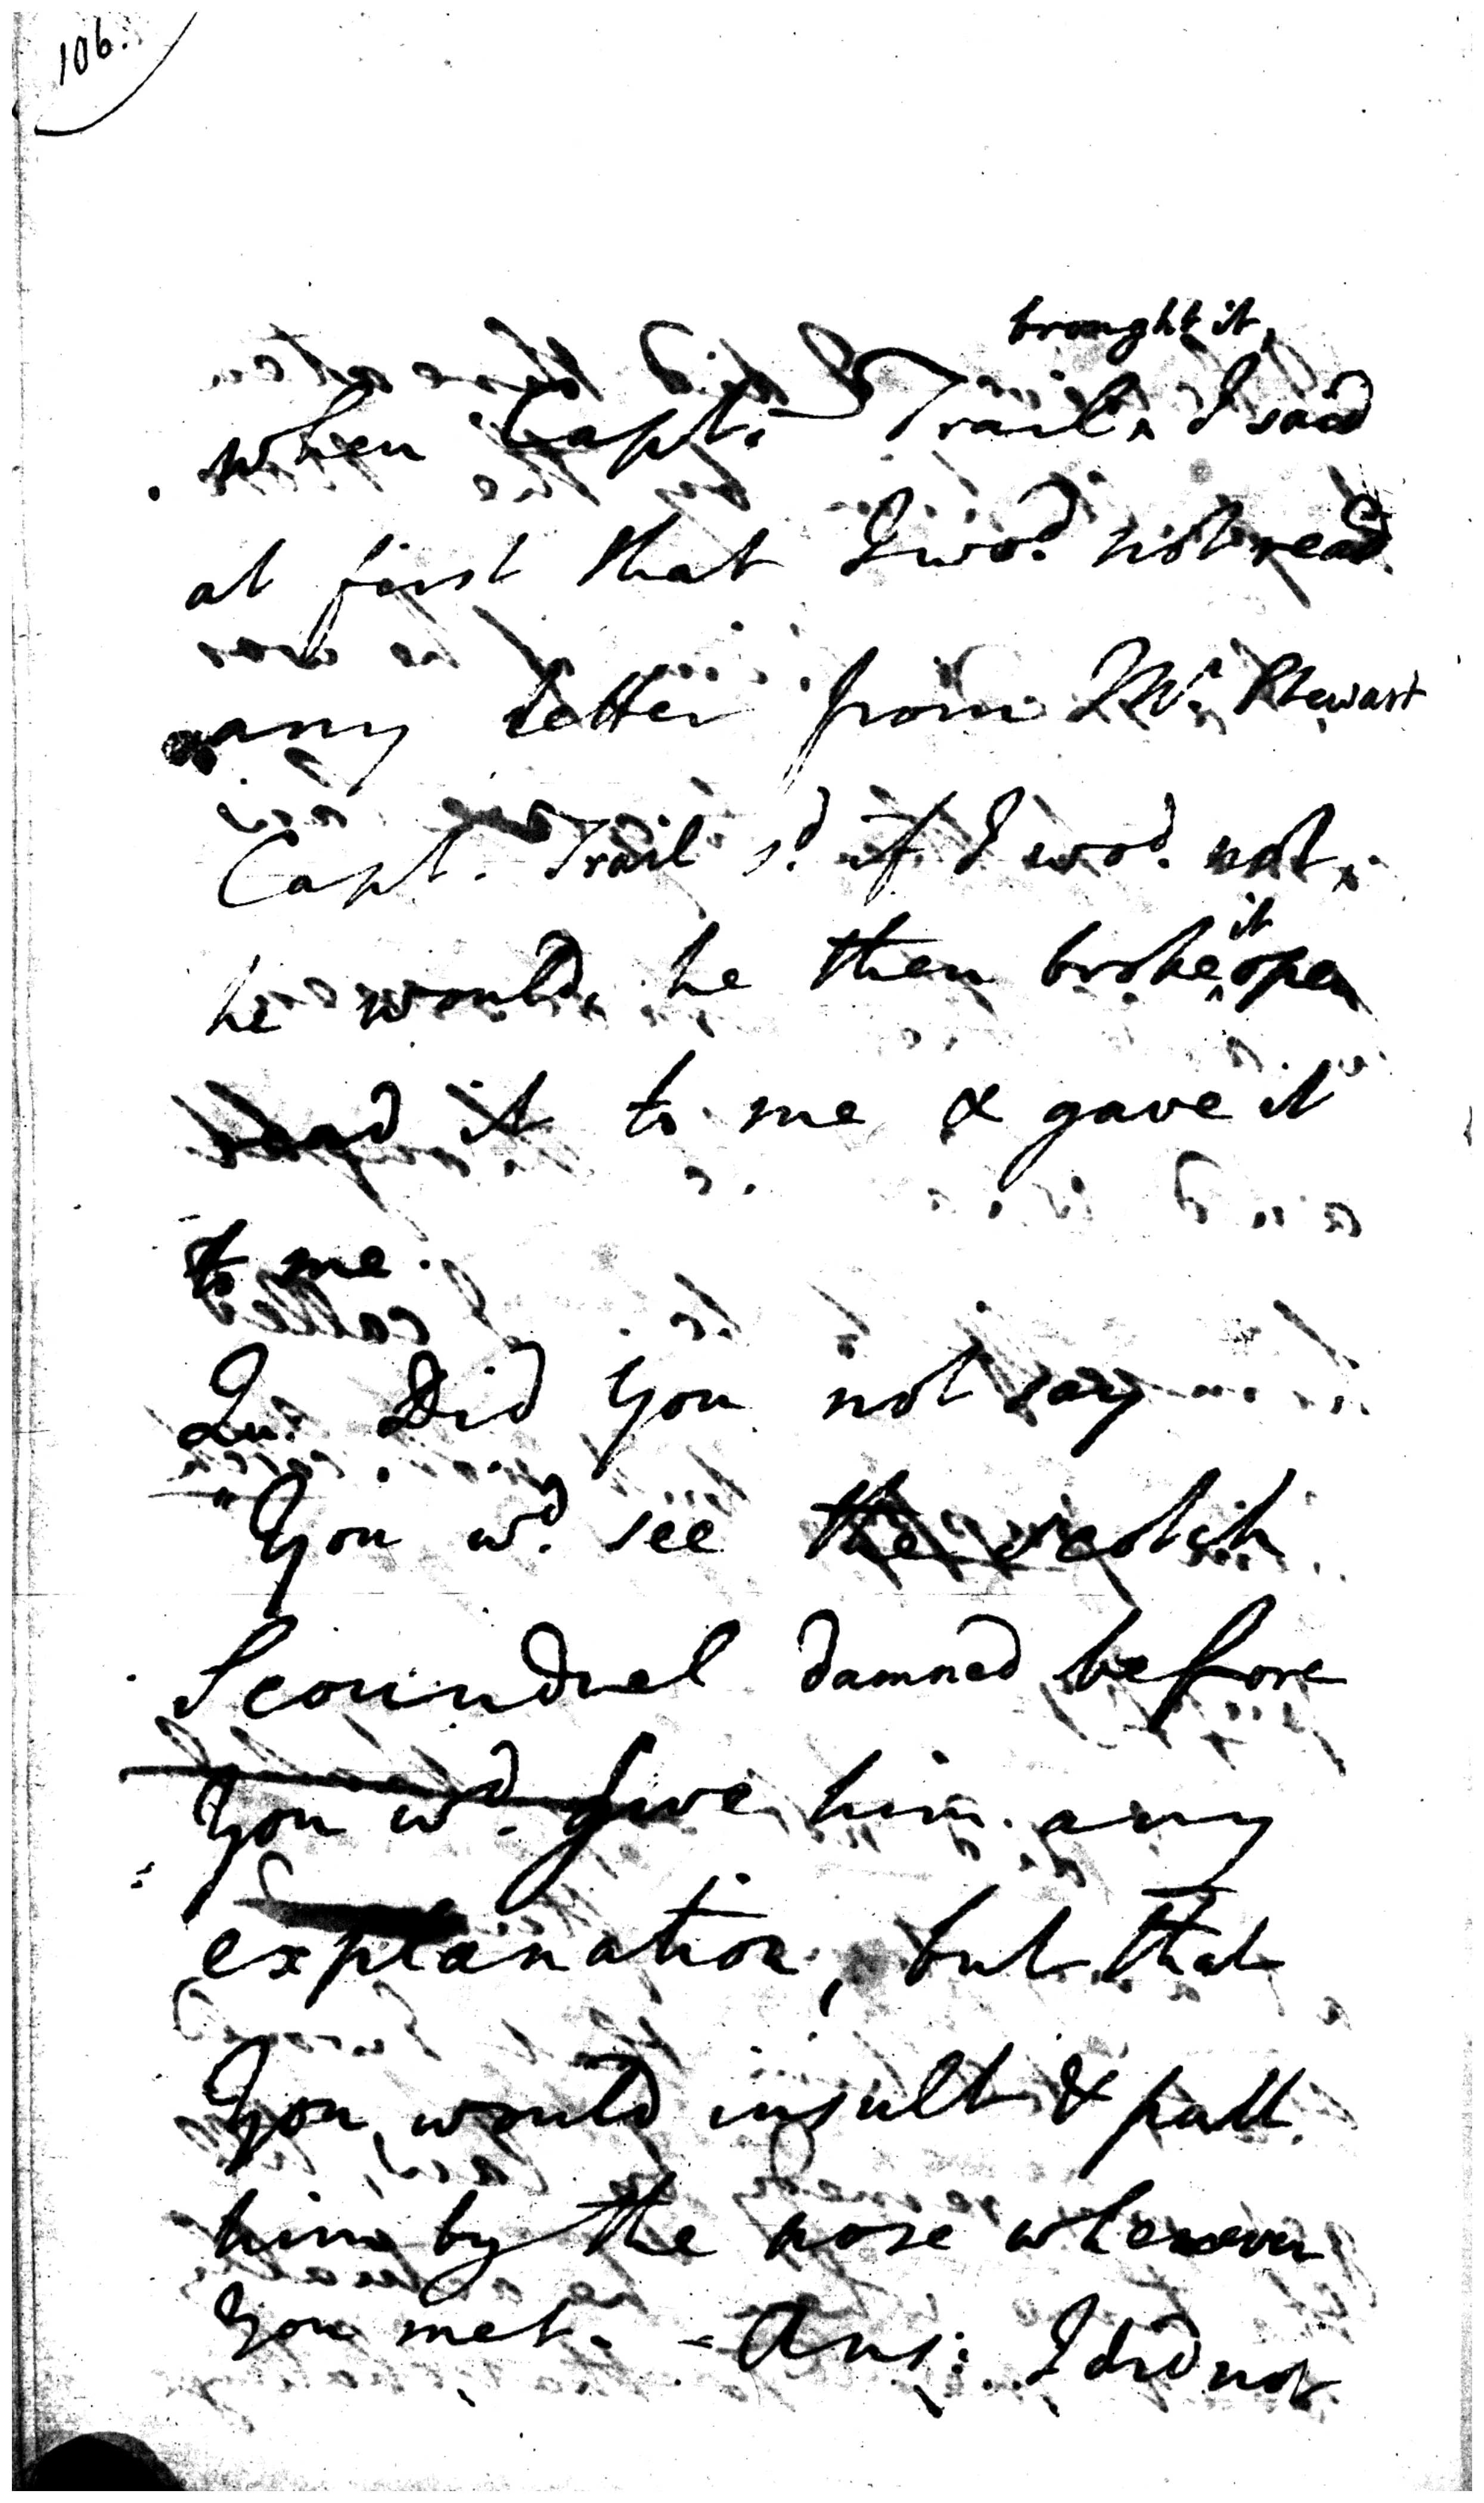 106.
brought it,
when Capt. Trail ^ I said
at first that I wod. not read
any letter from Mr. Stewart
Capt. Trail sd. if I wod. not,
he would, he then broke ^it open
read it to me & gave it
to me.
Qu. Did you not say
"You wd. see the scotch
Scoundrel damned before
you wd. give him any
explanation, but that
You would insult & pull
him by the nose whenever
you met. - Ans: I did not